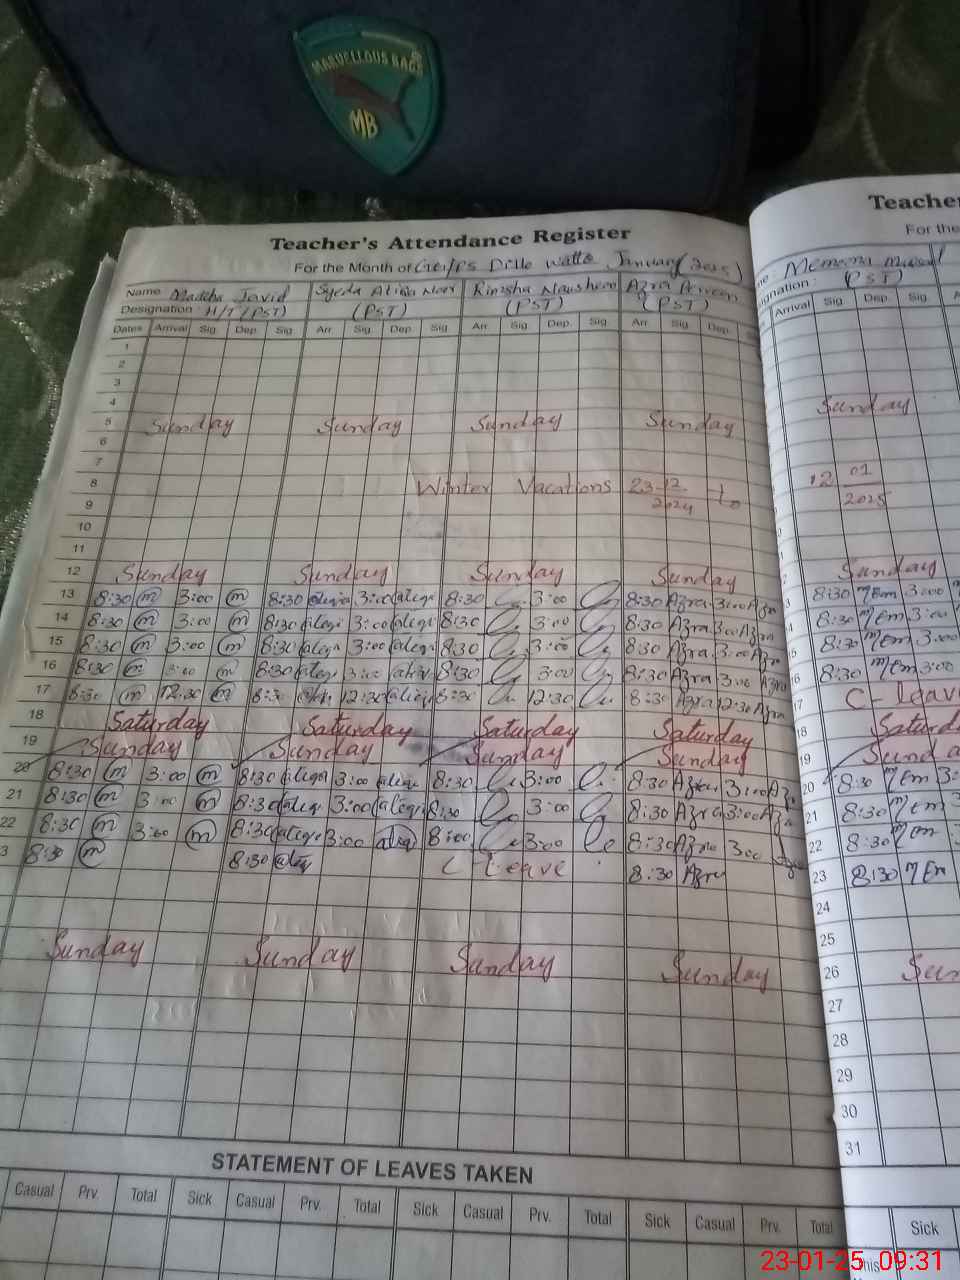 MARVELLOUS BAGS
MB
Teacher's Attendance Register
For the Month of January (2025)
Name Javid Syeda Rimsha Azra
Designation: H/T (PST) (PST) (PST) (PST)
Dates Arrival Sig. Dep. Sig. Arr. Sig. Dep. Sig. Arr. Sig. Dep. Sig. Arr. Sig. Dep.
1
2
3
4
5 Sunday Sunday Sunday Sunday
6
7
8 Winter Vacations 23-12-2024 to
9
10
11
12 Sunday Sunday Sunday Sunday
13 8:30 m 3:00 m 8:30 3:00 8:30 3:00 8:30 Azra 3:00 Azra
14 8:30 m 3:00 m 8:30 3:00 8:30 3:00 8:30 Azra 3:00 Azra
15 8:30 m 3:00 m 8:30 3:00 8:30 3:00 8:30 Azra 3:00 Azra
16 8:30 m 3:00 m 8:30 3:00 8:30 3:00 8:30 Azra 3:00 Azra
17 8:30 m 12:30 m 8:30 12:30 8:30 12:30 8:30 Azra 12:30 Azra
18 Saturday Saturday Saturday Saturday
19 Sunday Sunday Sunday Sunday
20 8:30 m 3:00 m 8:30 3:00 8:30 3:00 8:30 Azra 3:00
21 8:30 m 3:00 m 8:30 3:00 8:30 3:00 8:30 Azra 3:00
22 8:30 m 3:00 m 8:30 3:00 8:00 3:00 8:30 Azra 3:00
3 8:30 m 8:30 C Leave 8:30 Azra
Sunday Sunday Sunday Sunday
STATEMENT OF LEAVES TAKEN
Casual Prv. Total Sick Casual Prv. Total Sick Casual Prv. Total Sick Casual Prv. Total
Teacher
For the
(PST)
ignation:
Arrival Sig. Dep. Sig.
Sunday
12 01
2025
Sunday
8:30 3:00
8:30 3:00
8:30 3:00
8:30 3:00
17 C-leave
18 Saturda
19 Sunda
20 8:30 3:
21 8:30 3:
22 8:30 3:
23 8:30
24
25
26 Sun
27
28
29
30
31
Sick
This
23-01-25 09:31